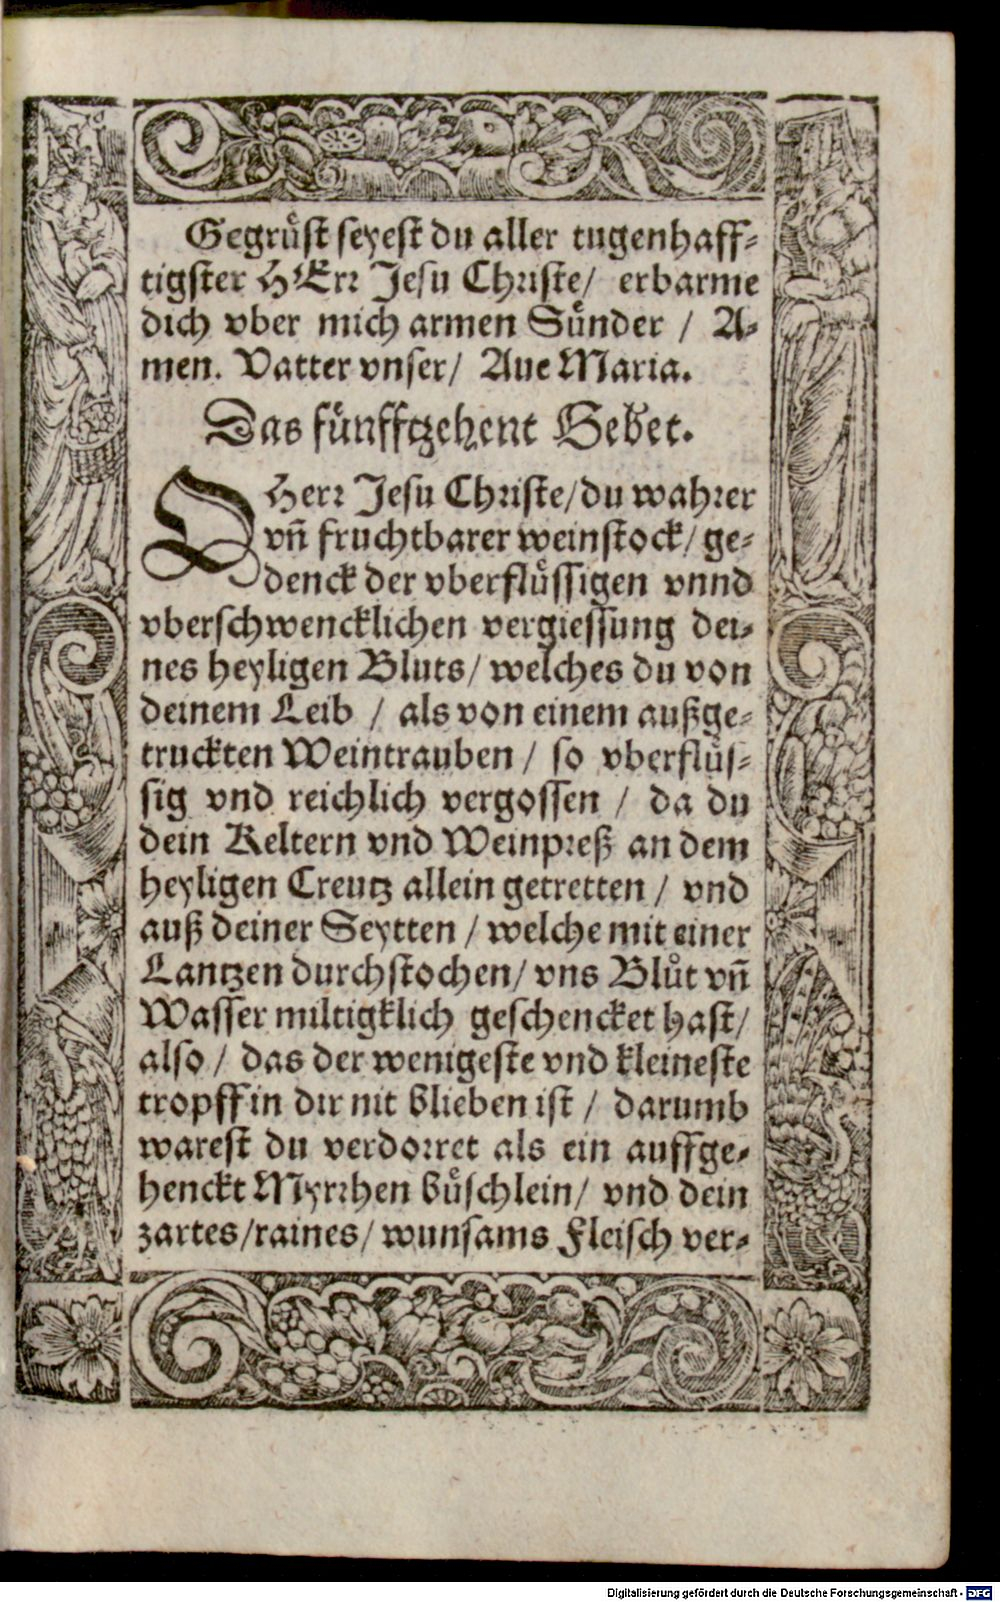 Gegrüst seyest du aller tugenhaff-
tigster HErr Jesu Christe/ erbarme
dich vber mich armen Sünder / A-
men. Vatter vnser/ Aue Maria.
Das fünfftzehent Gebet.
O Herr Jesu Christe/ du wahrer
vñ fruchtbarer weinstock/ ge-
denck der vberflüssigen vnnd
vberschwencklichen vergiessung dei-
nes heyligen Bluts/ welches du von
deinem Leib / als von einem außge-
truckten Weintrauben / so vberflüs-
sig vnd reichlich vergossen / da du
dein Keltern vnd Weinpreß an dem
heyligen Creutz allein getretten / vnd
auß deiner Seytten / welche mit einer
Lantzen durchstochen/ vns Blůt vñ
Wasser miltigklich geschencket hast/
also / das der wenigeste vnd kleineste
tropff in dir nit blieben ist / darumb
warest du verdorret als ein auffge-
henckt Myrrhen büschlein/ vnd dein
zartes/ raines/ wunsams Fleisch ver-
Digitalisierung gefördert durch die Deutsche Forschungsgemeinschaft - DFG